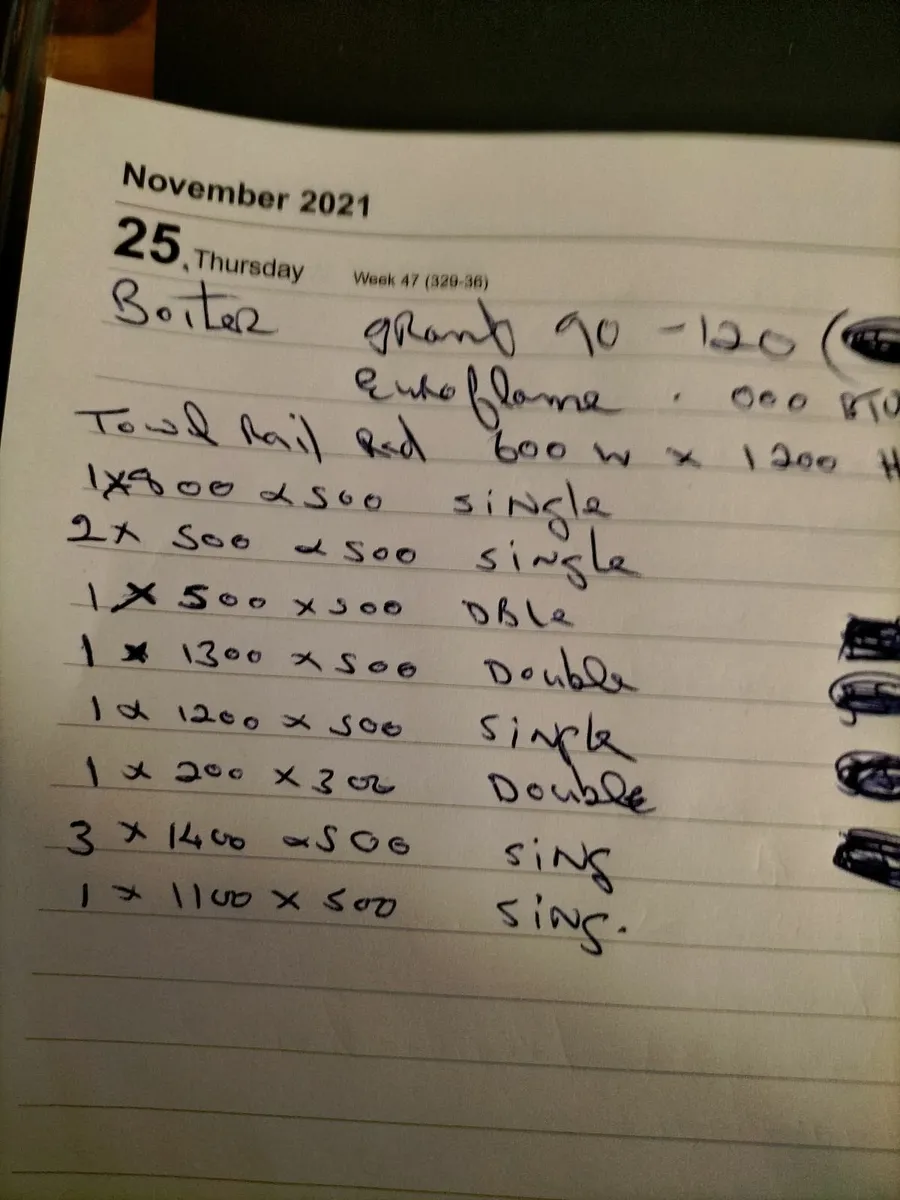 November 2021
25, Thursday Week 47 (329-36)
Boiler grant 90 - 120 (
Euroflame . 000 BTU
Towel Rail Rad 600 W x 1200 H
1 x 800 x 500 single
2 x 500 x 500 single
1 x 500 x 500 DBle
1 x 1300 x 500 Double
1 x 1200 x 500 Single
1 x 200 x 300 Double
3 x 1400 x 500 sing
1 x 1100 x 500 sing.